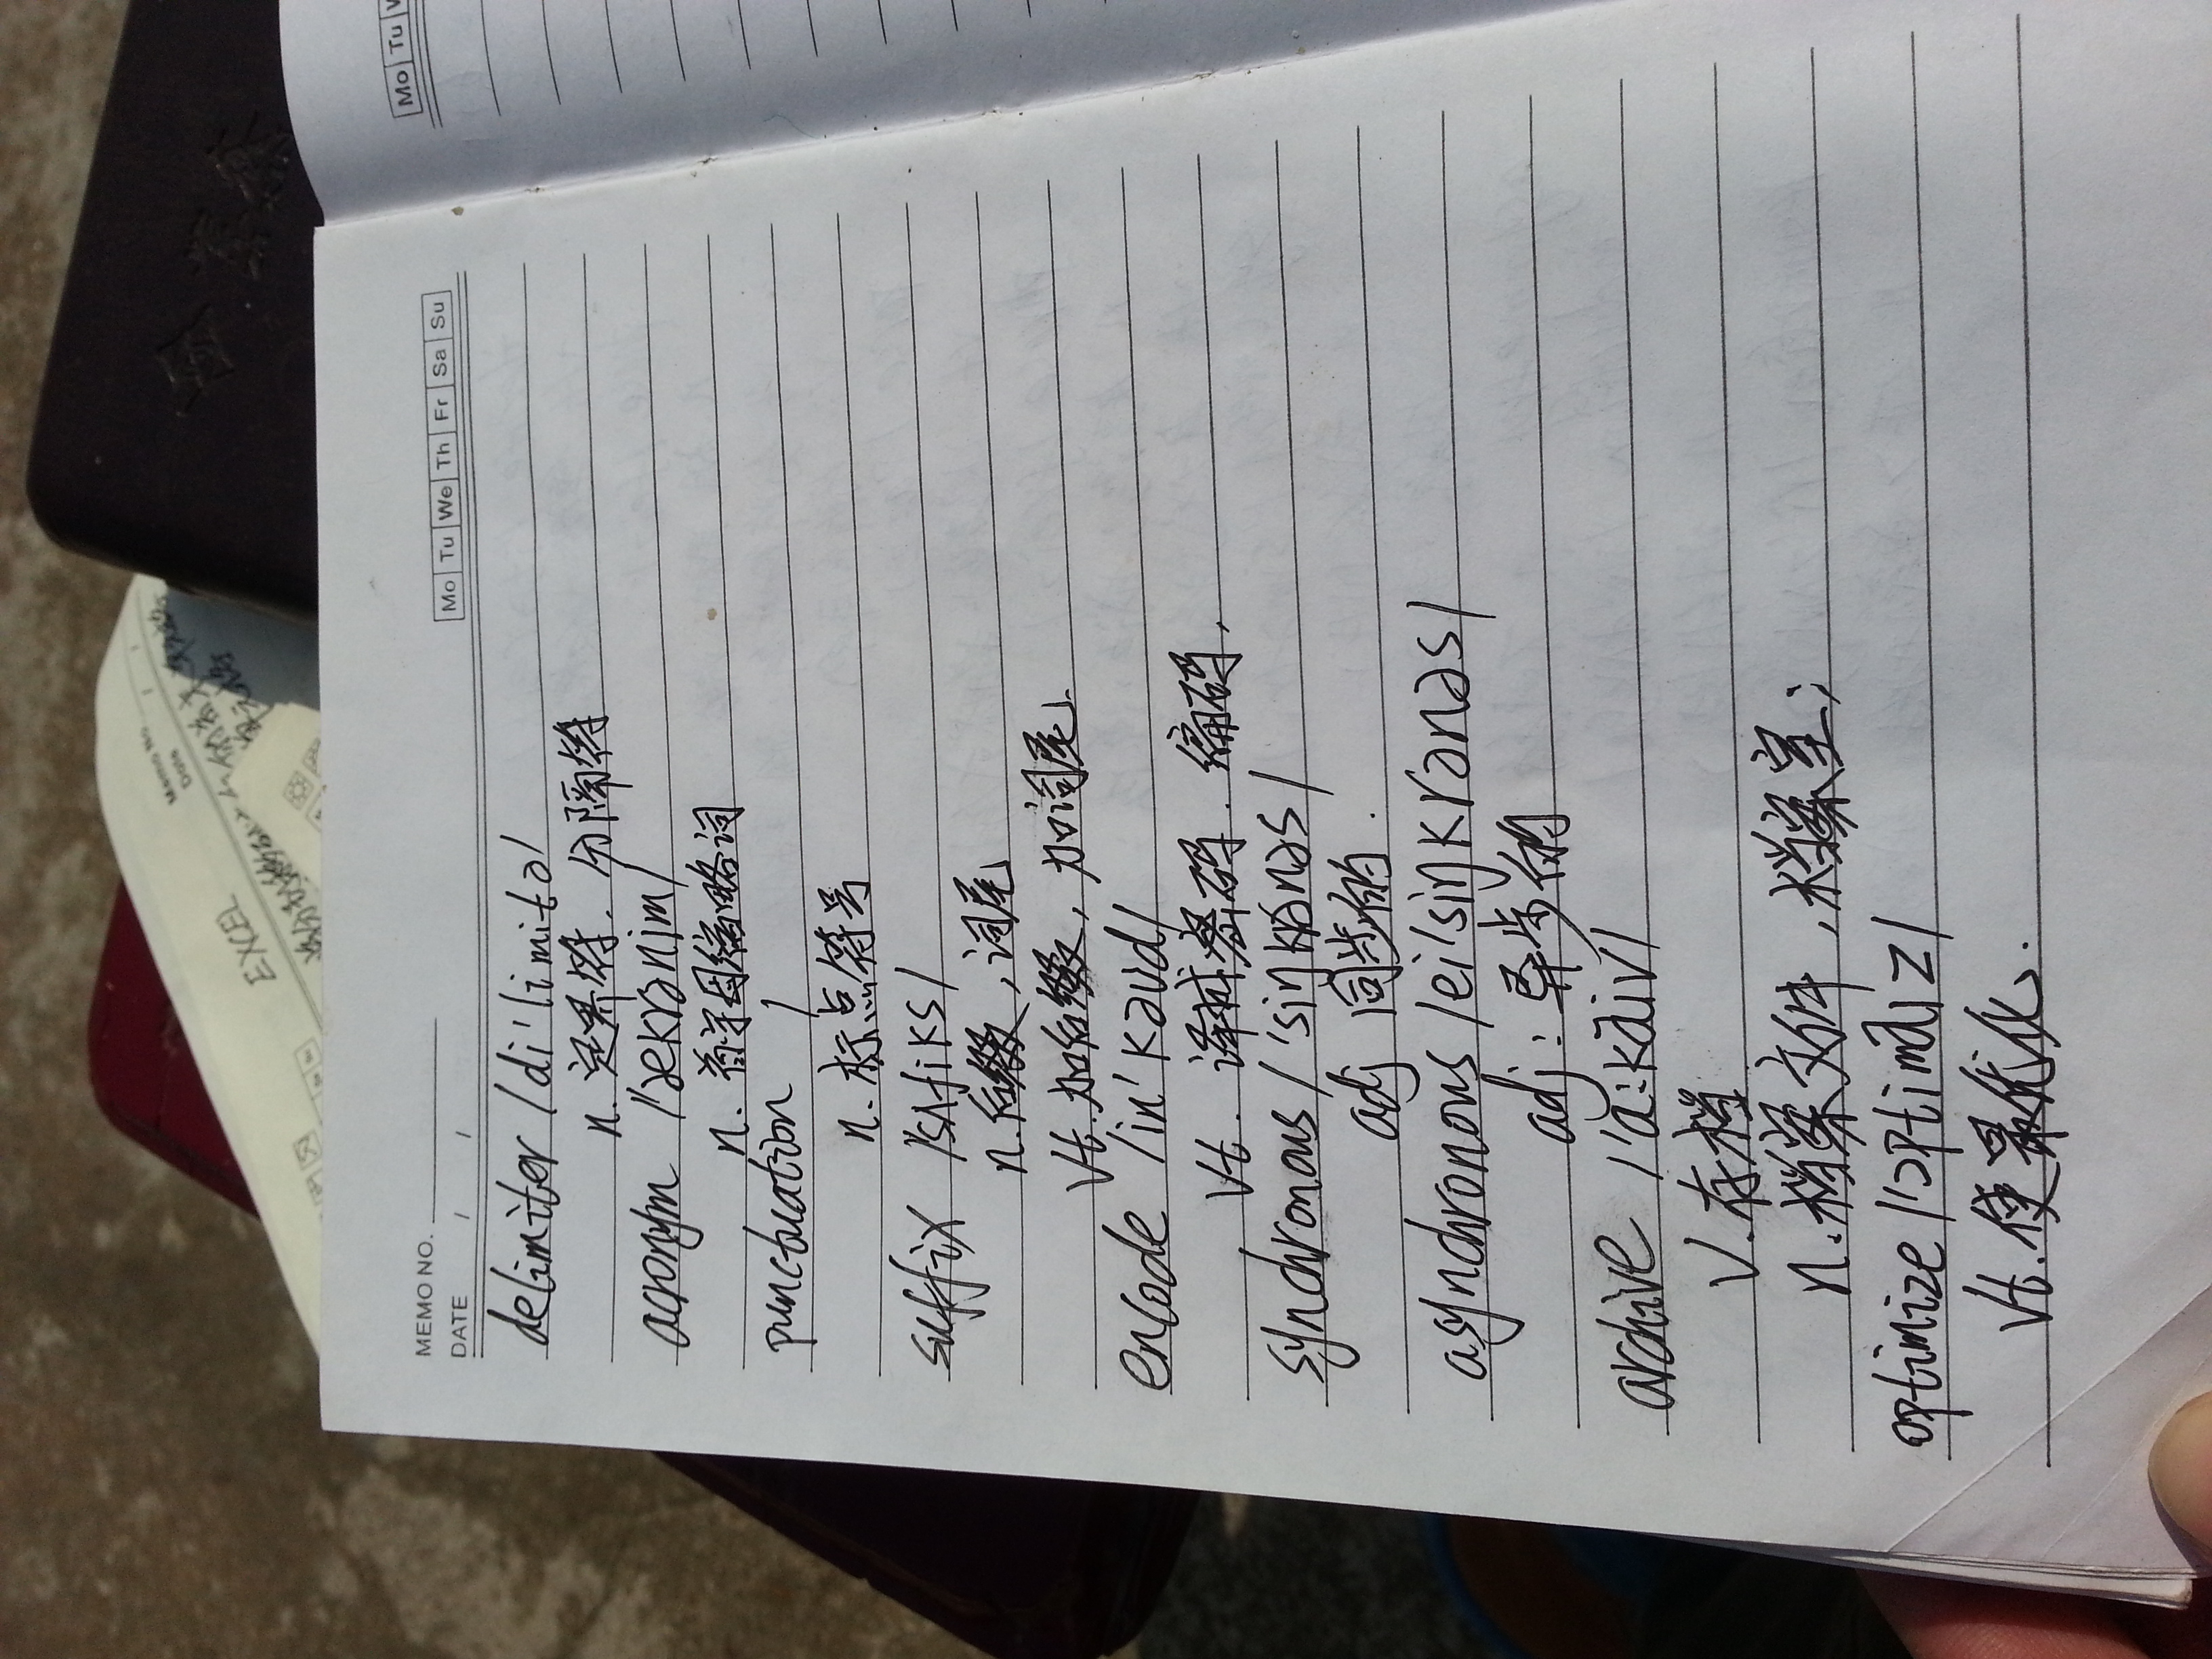 EXCEL
Memo No.
Date / /
MEMO NO.
DATE / /
Mo Tu We Th Fr Sa Su
Mo Tu
delimiter /di'limitə/
n. 定界符. 分隔符
acronym /'ækrənim/
n. 首字母缩略词
punctuation /
n. 标点符号
suffix /'sʌfiks/
n. 后缀, 词尾
Vt. 加后缀, 加词尾.
encode /in'kəud/
Vt. 译成密码. 编码,
synchronous /'siŋkrənəs/
adj 同步的.
asynchronous /ei'siŋkrənəs/
adj: 异步的
archive /'a:kaiv/
V. 存档
n. 档案文件, 档案室;
optimize /'ɔptimaiz/
Vt. 使最优化.